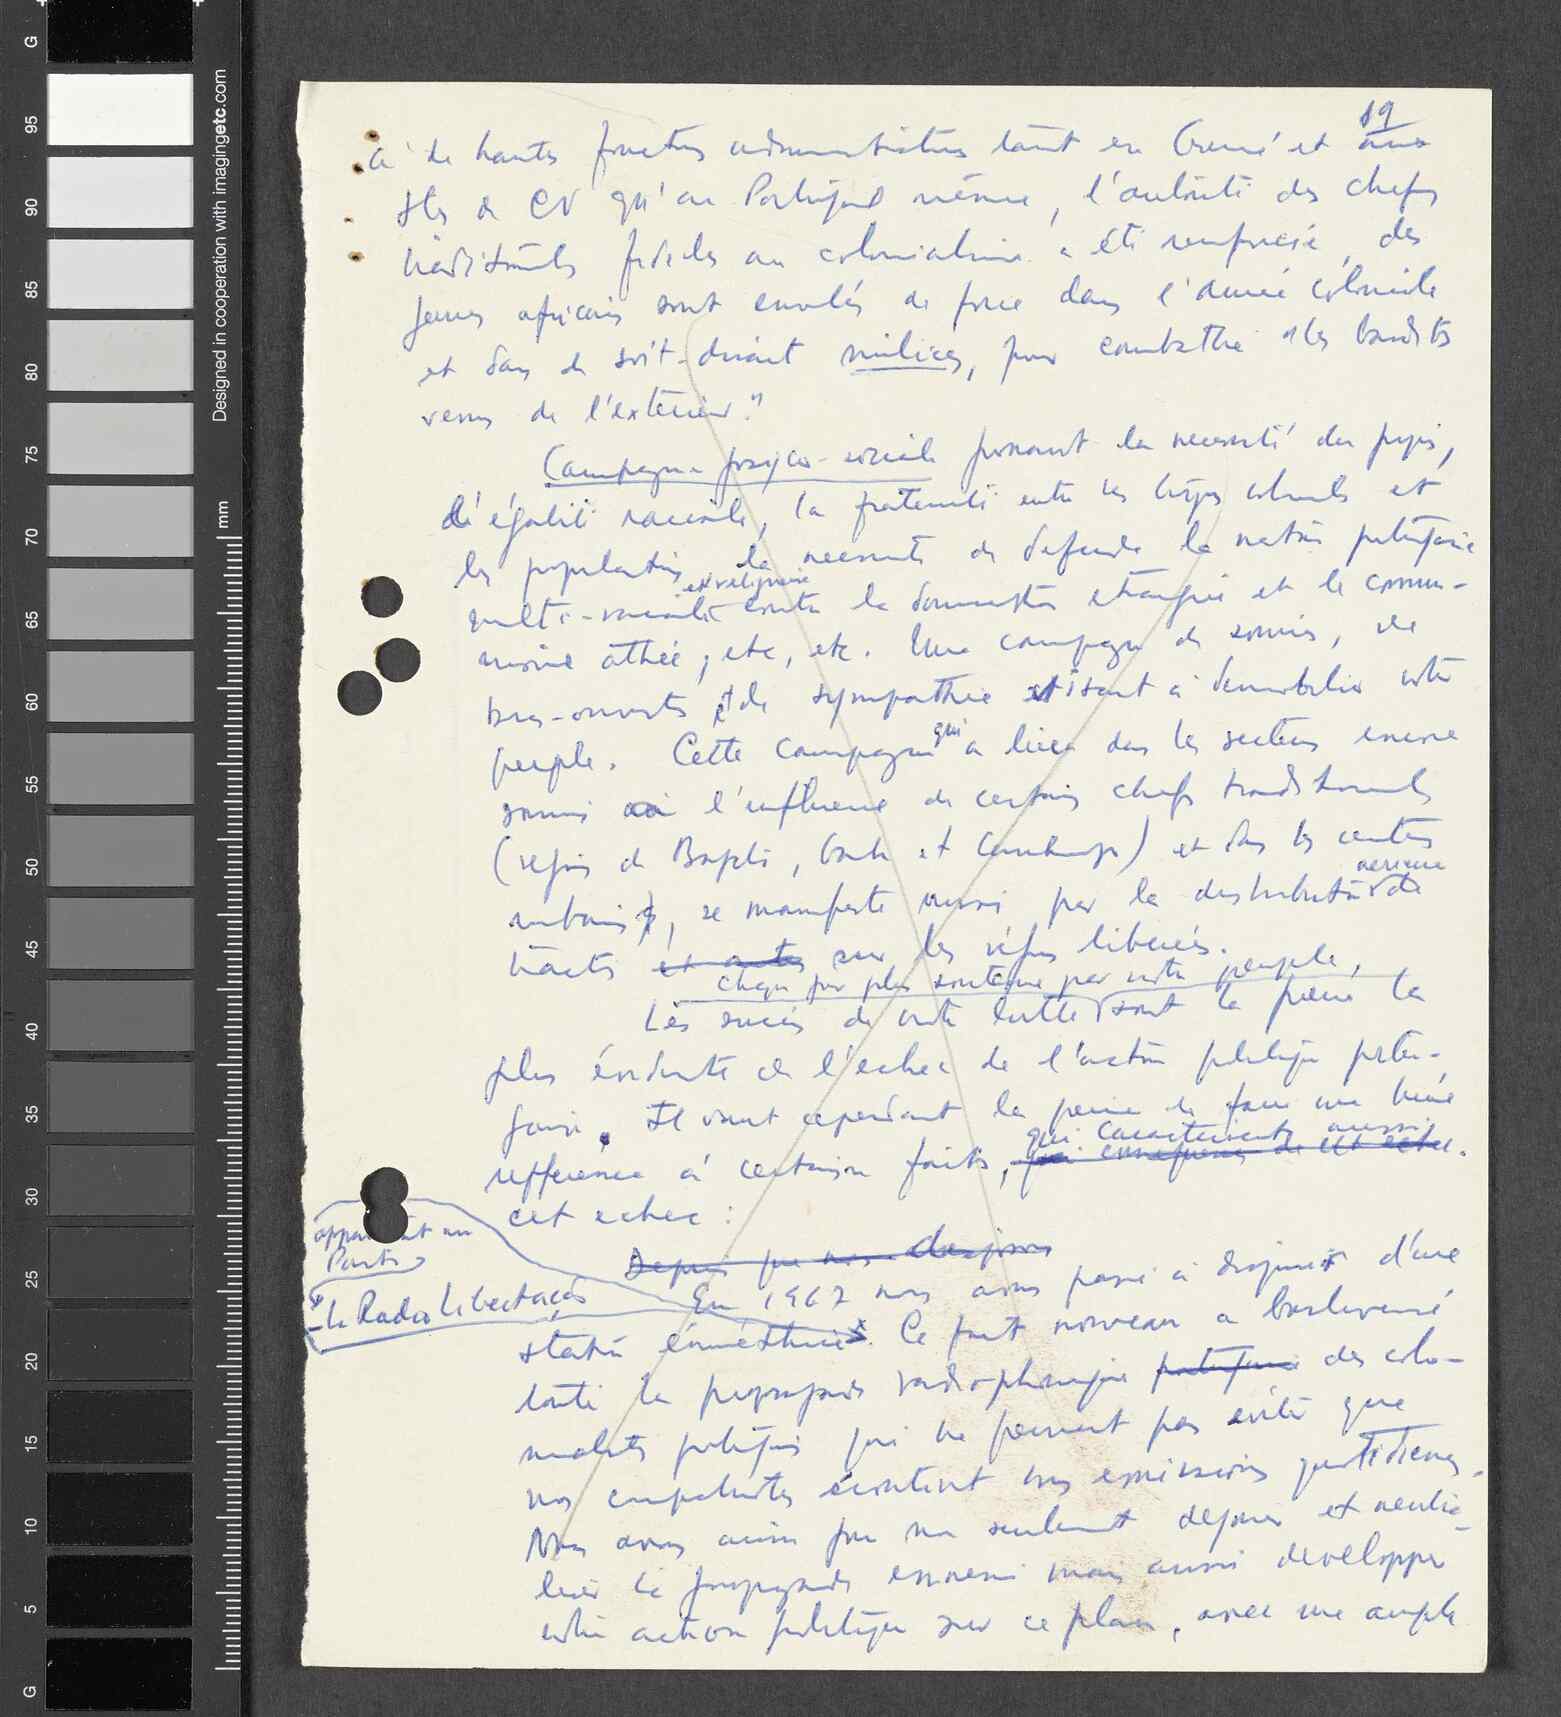 19
à de hautes fonctions administratives tant en Guiné et aux
Iles de CV qu'au Portugal même, l'autorité des chefs
traditionnels fidèles au colonialisme a été renforcée, des
jeunes africains sont enrolés de force dans l'armée coloniale
et dans de soit-disant milices, pour combattre "les bandits
venus de l'exterieur."
Campagne psyco-sociale prônant la necessité du pays,
d'égalité raciale, la fraternité entre les troupes coloniales et
les populations, la necessité de defendre la nation portugaise
et religieuse
multi-raciale contre la domination etrangère et le commu-
nisme athée, etc, etc. Une campagne de sourires, de
bras-ouverts et de sympathie visant à demobiliser notre
peuple. Cette campagne qui a lieu dans les secteurs encore
soumis à l'influence de certains chefs traditionnels
(region de Bafatá, Gabu et Canchungo) et dans les centres
urbains, se manifeste aussi par la distribution aerienne de
tracts et autres sur les régions liberées.
chaque jour plus soutenue par notre peuple,
Les succès de notre lutte sont la preuve la
plus évidente de l'echec de l'action politique portu-
gaise. Il vaut cependant la peine de faire une brève
qui caracterisent aussi
refference à certains faits, qui consequences de cet echec.
cet echec :
Depuis que nous disposons
appartenant au
Parti
- la Radio Libertação
En 1967 nous avons passé à disposer d'une
station émettrice. Ce fait nouveau a bouleversé
toute la propagande radiophonique portugaise des colo-
nialistes portugais qui ne peuvent pas éviter que
nos compatriotes écoutent nos emissions quotidiennes.
Nous avons ainsi pu non seulement dejouer et neutra-
liser la propagande ennemie mais aussi developper
notre action politique sur ce plan, avec une ample
G
95
90
85
80
75
70
65
60
55
50
45
40
35
30
25
20
15
10
5
G
Designed in cooperation with imagingetc.com
mm